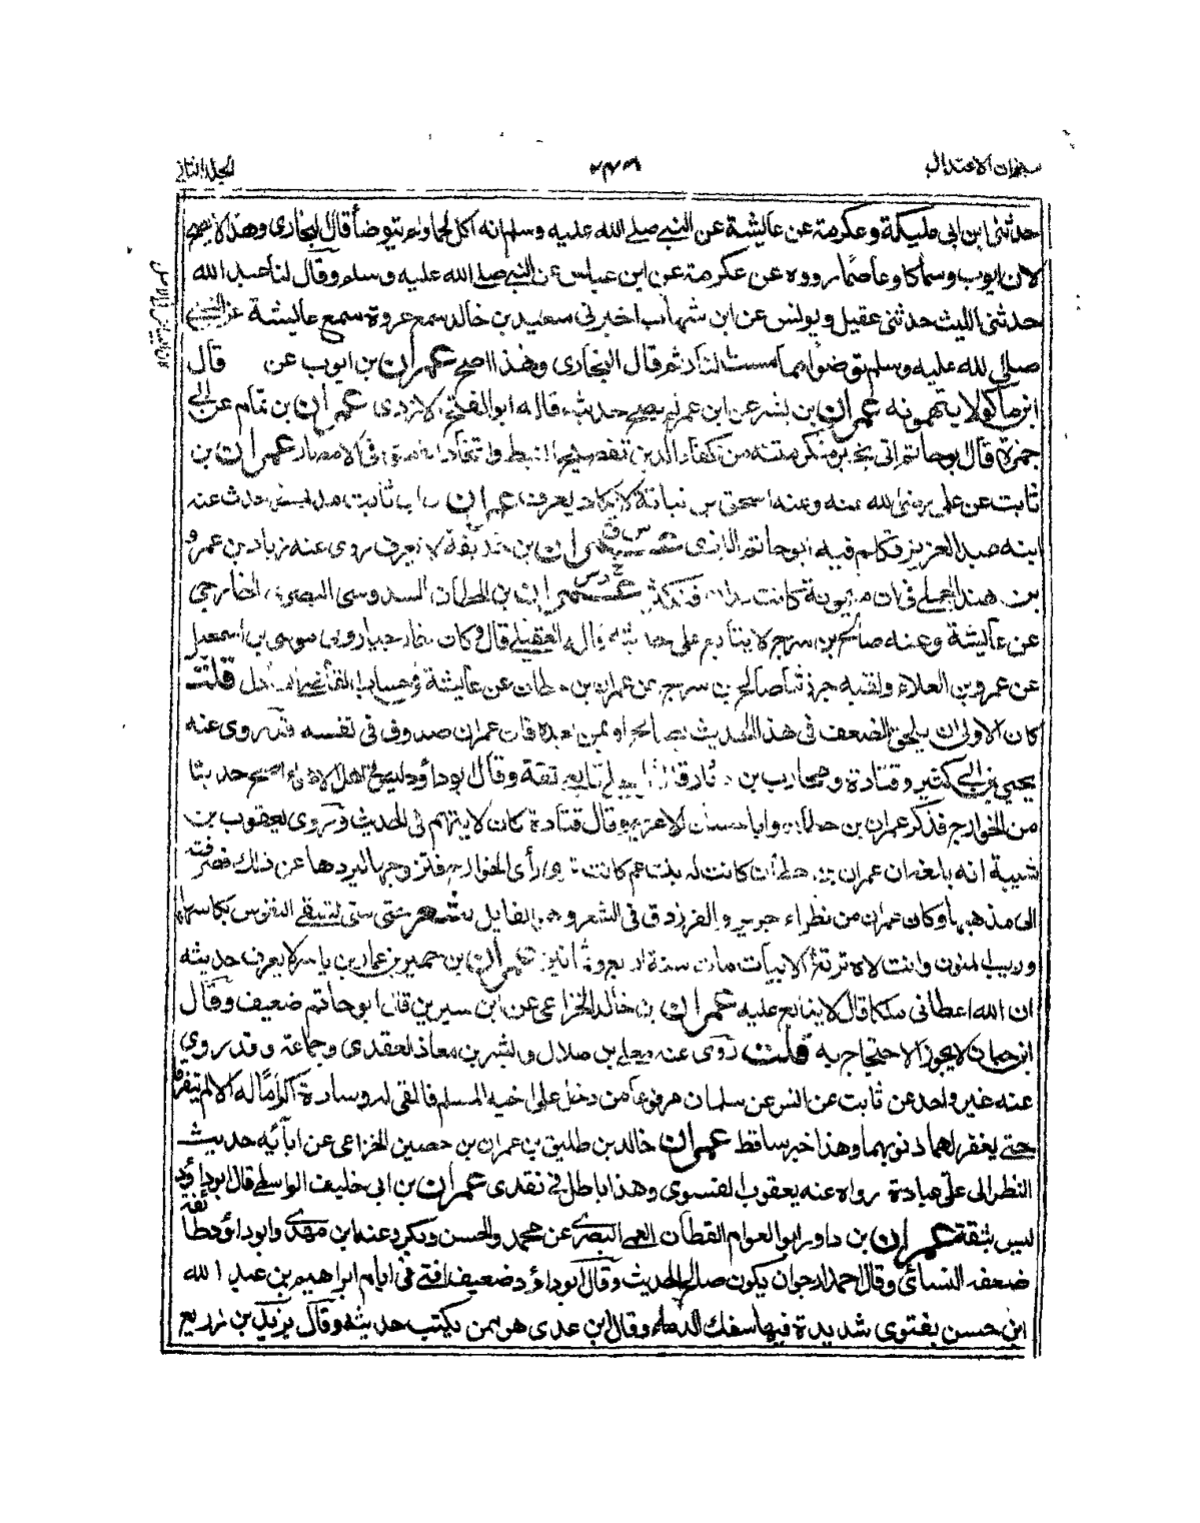 ميزان الاعتدال
الجلد الثاني
حدثنا ابن ابى مليكة وعكرمة عن عايشة عن النبى صلى الله عليه وسلم انه اكل لحما ولم يتوضأ قال البخارى وهذا لا يصح
لان ايوب وسماكا وعاصما رووه عن عكرمة عن ابن عباس عن النبى صلى الله عليه وسلم وقال لنا عبد الله
حدثنى الليث حدثنى عقيل ويونس عن ابن شهاب اخبرنى سعيد بن خالد سمع عروة سمع عايشة عن النبى
صلى الله عليه وسلم توضئوا مما مست النار ثم قال البخارى وهذا اصح عمران بن ايوب عن قال
ابن ماكولا يتهمونه عمران بن بشر عن ابن عمر لم يصح حديثه قاله ابو الفتح الازدى عمران بن تمام عن ابى
جمرة قال ابو حاتم اتى بخبر منكر متنه من كفار الدين تفصيح النبط واتخاذ فى الامصار عمران بن
ثابت عن على رضى الله عنه وعنه اسحق بن نباتة لا يكاد يعرف عمران بن ابى ثابت مدنى حدث عنه
ابنه عبد العزيز تكلم فيه ابو حاتم الرازى عمران بن حذيفة لا يعرف روى عنه زياد بن عمرو
بن هند الجملى فى ان ميمونة كانت تدان فتكثر عمران بن حطان السدوسى البصرى الخارجى
عن عايشة وعنه صالح بن سرج لا يتابع على حديثه قاله العقيلى قال وكان خارجيا روى موسى بن اسمعيل
عن عمرو بن العلاء ولقبه جرز ثنا صالح بن سرج عن عمران بن حطان عن عايشة فى حساب القاضى العادل قلت
كان الاولى ان يلحق الضعف فى هذا الحديث بصالح او بمن بعده فان عمران صدوق فى نفسه قد روى عنه
يحيى بن ابى كثير وقتادة ومحارب بن دثار قال العجلى تابعى ثقة وقال ابو داؤد ليس فى اهل الاهواء اصح حديثا
من الخوارج فذكر عمران بن حطان وابا حسان الاعرج وقال قتادة كان لا يتهم فى الحديث وروى يعقوب بن
شيبة انه بلغه ان عمران بن حطان كانت له بنت عم كانت ترى رأى الخوارج فتزوجها ليردها عن ذلك فصرفته
الى مذهبها وكان عمران من نظراء جرير والفرزدق فى الشعر وهو القايل شعر حتى متى تسقى النفوس بكاسها
وريب المنون وانت لاه ترتع الابيات مات سنة اربع وثمانين عمران بن حمير عن عمار بن ياسر لا يعرف حديثه
ان الله اعطانى ملكا قال لا يتابع عليه عمران بن خالد الخزاعى عن ابن سيرين قال ابو حاتم ضعيف وقال
ابن حبان لا يجوز الاحتجاج به قلت روى عنه معلى بن هلال وبشر بن معاذ العقدى وجماعة وقد روى
عنه غير واحد عن ثابت عن انس عن سلمان مرفوعا من دخل على اخيه المسلم فالقى له وسادة اكراما له الا لم يتفرقا
حتى يغفر لهما ذنوبهما وهذا خبر ساقط عمران خالد بن طليق بن عمران بن حصين الخزاعى عن ابائه حديث
النظر الى على عبادة رواه عنه يعقوب الفسوى وهذا باطل فى نقدى عمران بن ابى خليفة الواسطى قال ابو داؤد
ليس بثقة عمران بن داور ابو العوام القطان العمى البصرى عن محمد والحسن وبكر وعنه ابن مهدى وابو داؤد
ضعفه النسائى وقال احمد ارجو ان يكون صالح الحديث وقال ابو داؤد ضعيف افتى فى ايام ابراهيم بن عبد الله
ابن حسن بفتوى شديدة فيها سفك الدماء وقال ابن عدى هو ممن يكتب حديثه وقال يزيد بن زريع